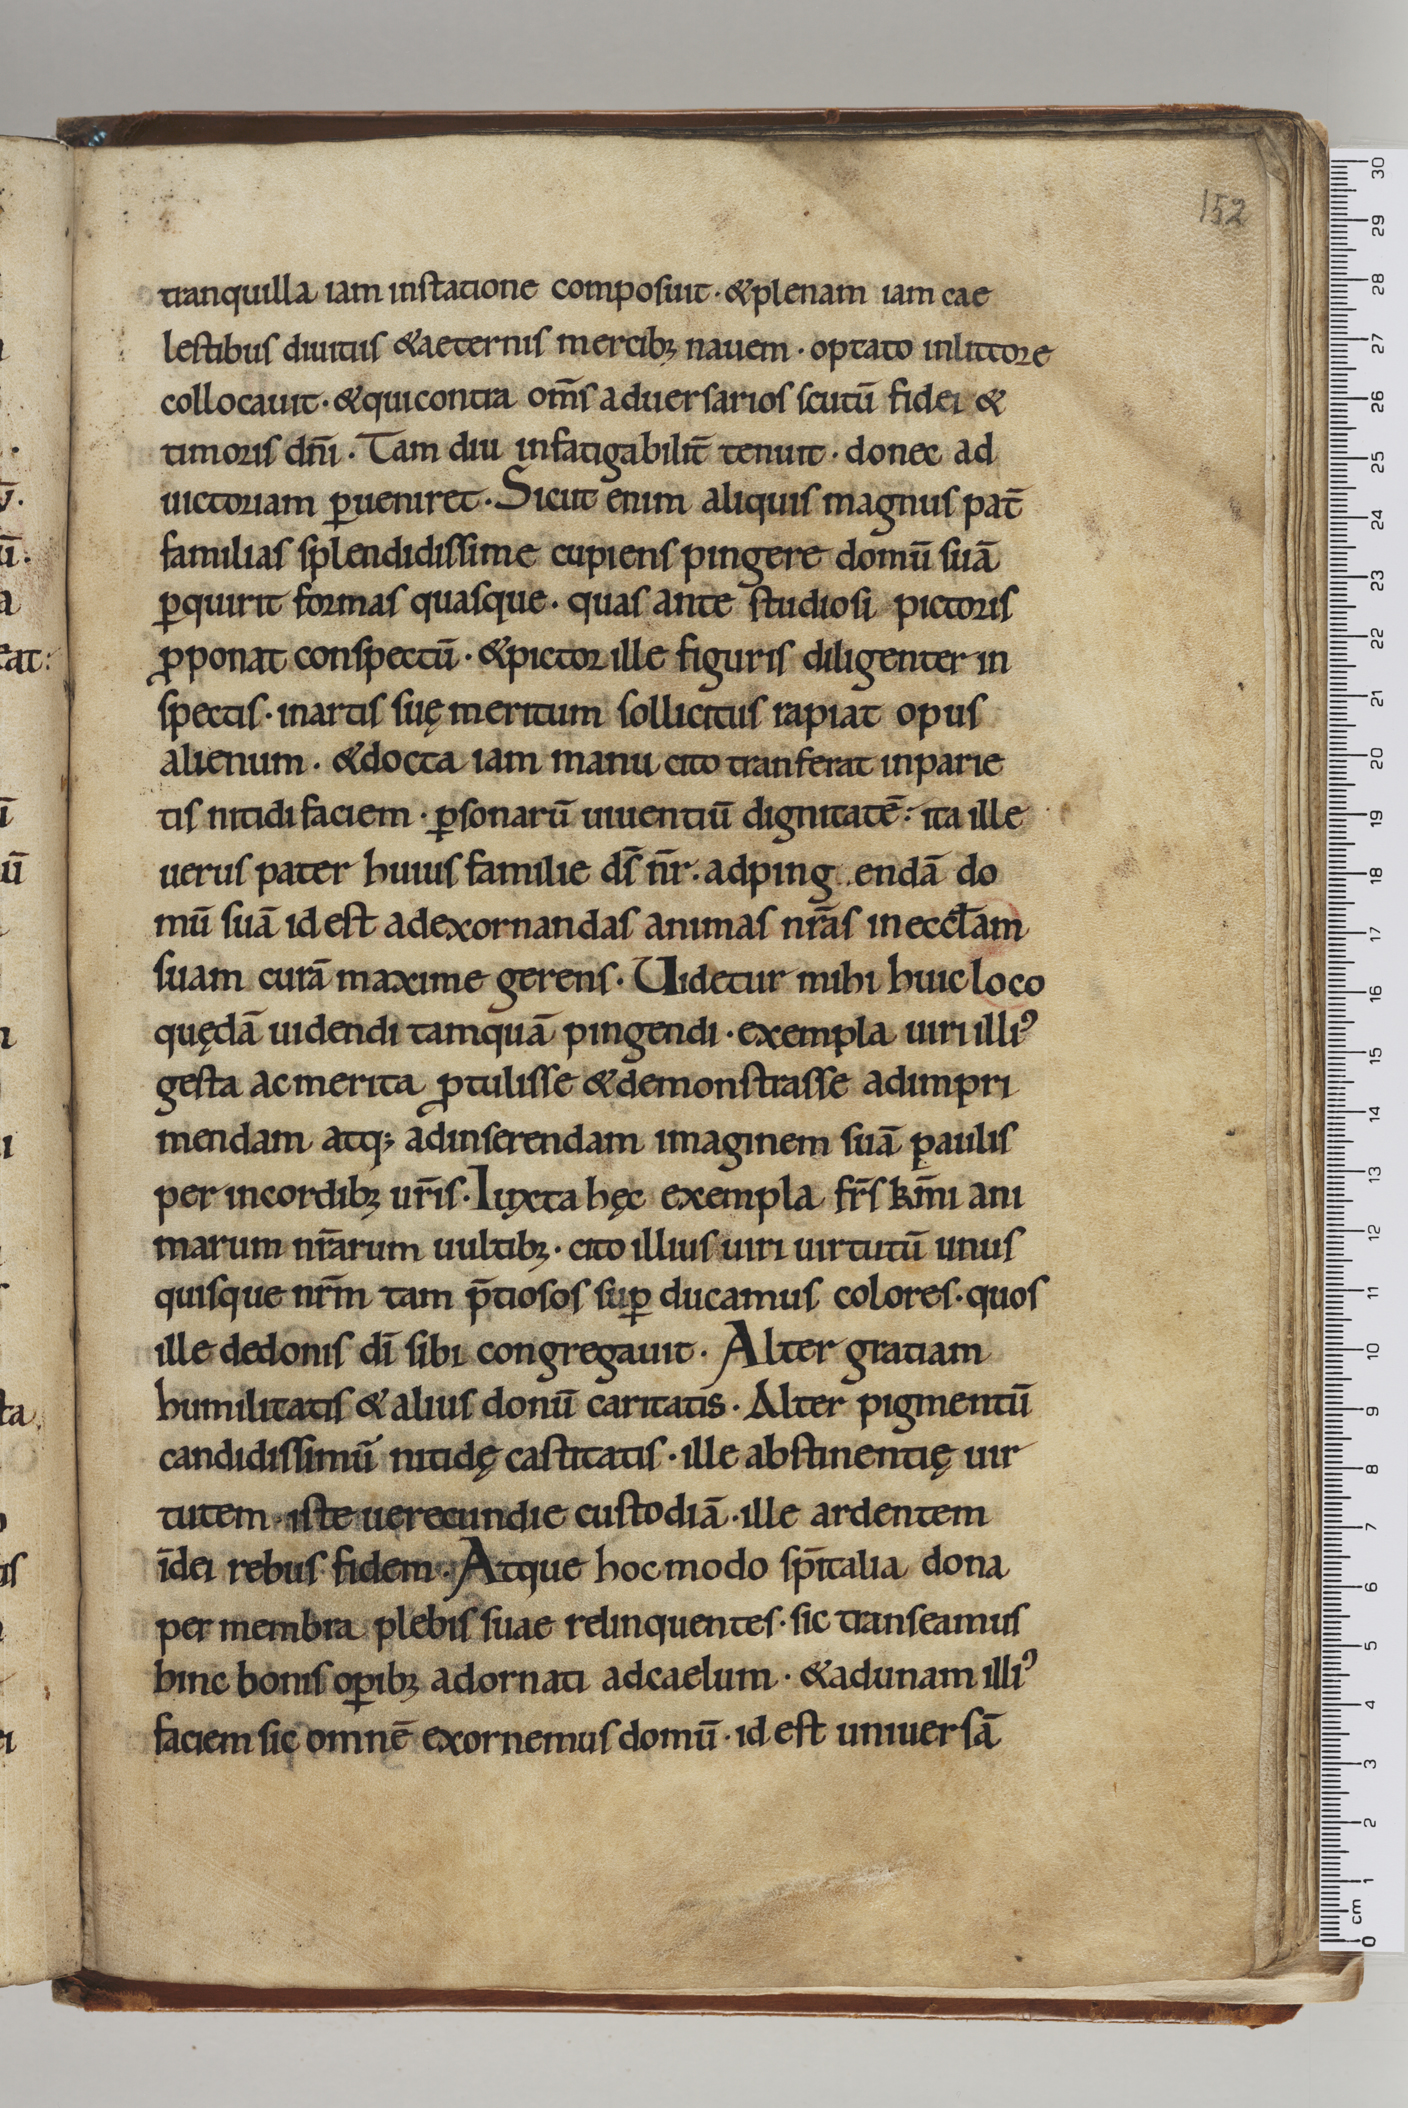 152
tranquilla iam instatione composuit · &plenam iam cae
lestibus diuitiis &aeternis mercib; nauem · optato inlittore
collocauit · &quicontra om̄s aduersarios scutū fidei &
timoris dn̄i · Tam diu infatigabilit̄ tenuit · donec ad
uictoriam ꝑueniret · Sicut enim aliquis magnus pat̄
familias splendidissime cupiens pingere domū suā
ꝑquirit formas quasque · quas ante studiosi pictoris
ꝓponat conspectū · &pictor ille figuris diligenter in
spectis · inartis suę meritum sollicitus rapiat opus
alienum · &docta iam manu cito tranferat inparie
tis nitidi faciem · ꝑsonarū uiuentiū dignitatē : ita ille
uerus pater huius familie ds̄ nr̄ · adping endā do
mū suā id est adexornandas animas nr̄as in eccƚam
suam curā maxime gerens · Uidetur mihi huic loco
quędā uidendi tamquā pingendi · exempla uiri illiꝰ
gesta ac merita ꝓtulisse &demonstrasse adimpri
mendam atq; adinserendam imaginem suā paulis
per incordib; ur̄is · Iuxta hęc exempla fr̄s km̄i ani
marum nr̄arum uultib; · cito illius uiri uirtutū unus
quisque nr̄m tam p̄tiosos suꝑ ducamus colores · quos
ille dedonis dī sibi congregauit · Alter gratiam
humilitatis & alius donū caritatis · Alter pigmentū
candidissimū nitidę castitatis · ille abstinentię uir
tutem · iste uerecundie custodiā · ille ardentem
īdei rebus fidem · Atque hoc modo sp̄italia dona
per membra plebis suae relinquentes · sic transeamus
hinc bonis oꝑib; adornati adcaelum · &adunam illiꝰ
faciem sic omnē exornemus domū · id est uniuersā